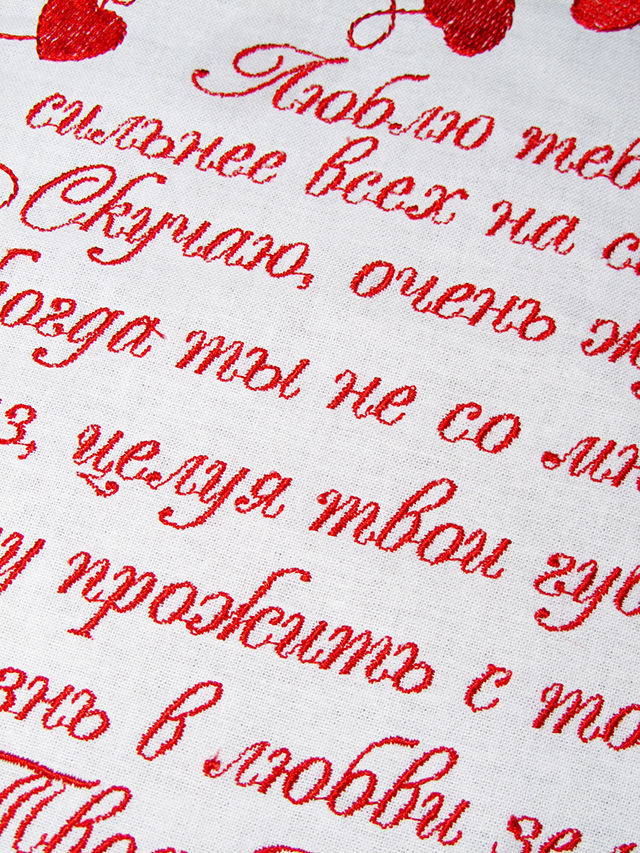 Люблю теб
сильнее всех на с
Скучаю, очень ж
когда ты не со мн
з, целуя твои губ
у прожить с то
знь в любви зе
Твоя